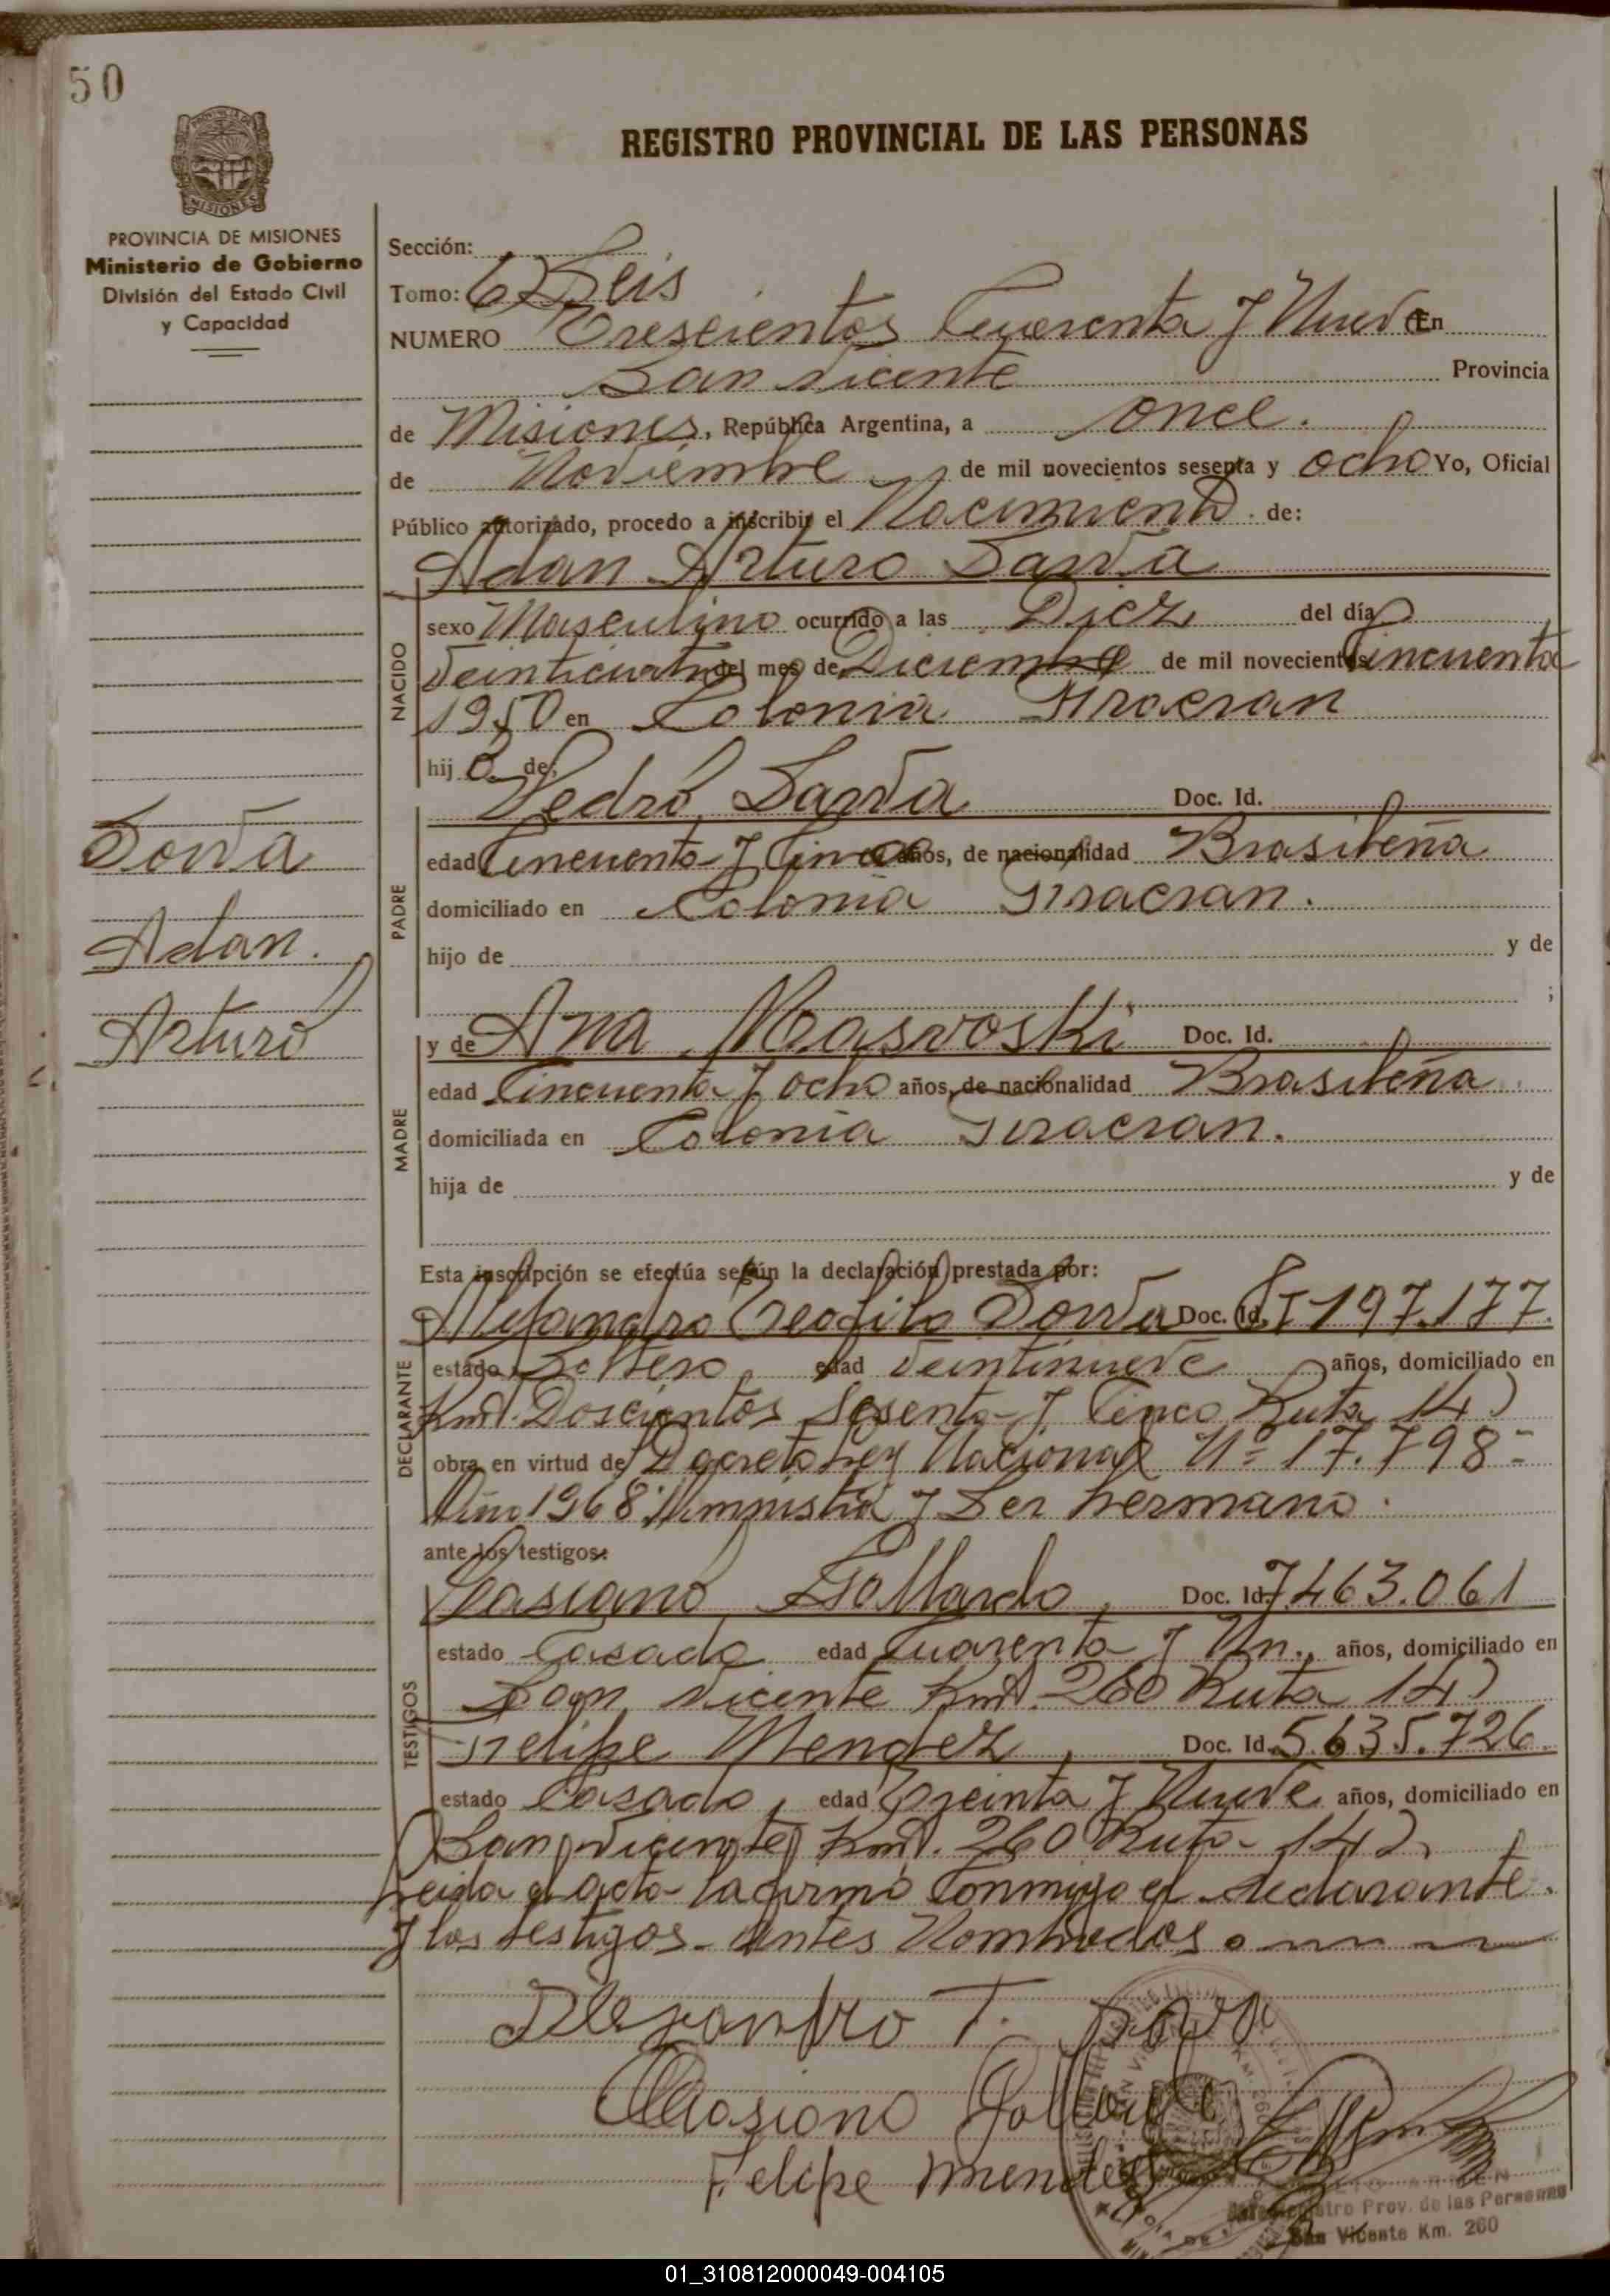 50
REGISTRO PROVINCIAL DE LAS PERSONAS
MISIONES
PROVINCIA DE MISIONES
Ministerio de Gobierno
División del Estado Civil
y Capacidad
Sección:
Tomo: 6 Seis
NUMERO Trescientos Cuarenta y Nueve En
San Vicente Provincia
de Misiones, República Argentina, a once.
de Noviembre de mil novecientos sesenta y ocho Yo, Oficial
Público autorizado, procedo a inscribir el Nacimiento de:
Adan Arturo
NACIDO
sexo Masculino ocurrido a las Diez del día
Veinticuatro del mes de Diciembre de mil novecientos Cincuenta
1950 en Colonia Fracran
hijo de:
PADRE
Pedro Doc. Id.
edad Cincuenta y Cinco años, de nacionalidad Brasileña
domiciliado en Colonia Fracran.
hijo de y de
;
Adan.
Arturo
MADRE
y de Ana Doc. Id.
edad Cincuenta y ocho años, de nacionalidad Brasileña
domiciliada en Colonia Fracran.
hija de y de
Esta inscripción se efectúa según la declaración prestada por:
DECLARANTE
Alejandro Teofilo Doc. Id. 197.177.
estado Soltero, edad Veintinueve años, domiciliado en
Km. Doscientos Sesenta y Cinco Ruta 14
obra en virtud de Decreto Ley Nacional Nº 17.798-
Año 1968 Amnistia y Ser hermano.
ante los testigos:
TESTIGOS
Casiano Gallardo, Doc. Id. 7463.061
estado Casado edad Cuarenta y Un., años, domiciliado en
San Vicente Km. 260 Ruta 14
Felipe Mendez, Doc. Id. 5.635.726.
estado Casado, edad Treinta y Nueve años, domiciliado en
San Vicente Km. 260 Ruta 14
Leida el acta la firmo Conmigo el declarante.
y los testigos antes Nombrados
Alejandro T.
Casiano Gallardo
Felipe Mendez
Registro Prov. de las Personas
San Vicente Km. 260
01_310812000049-004105